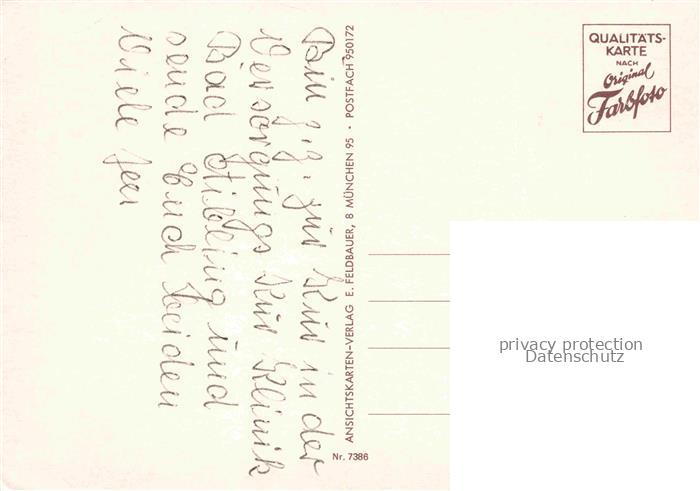 Bin z. Z. zur Kur in der
Versorgungs Kur Klinik
Bad Aibling und
sende Euch beiden
Viele
ANSICHTSKARTEN-VERLAG E. FELDBAUER, 8 MÜNCHEN 95 · POSTFACH 950172
Nr. 7386
QUALITÄTS-
KARTE
NACH
Original
Farbfoto
privacy protection
Datenschutz